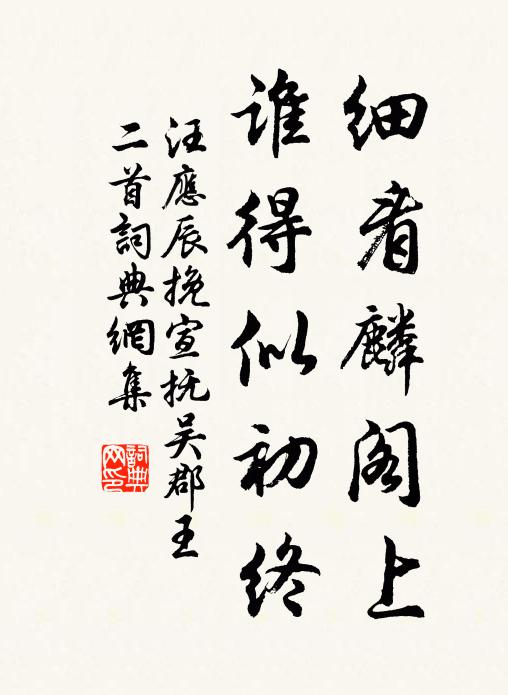 细看麟阁上
谁得似初终
汪應辰挽宣抚吴郡王
二首詞典網集
詞典网印